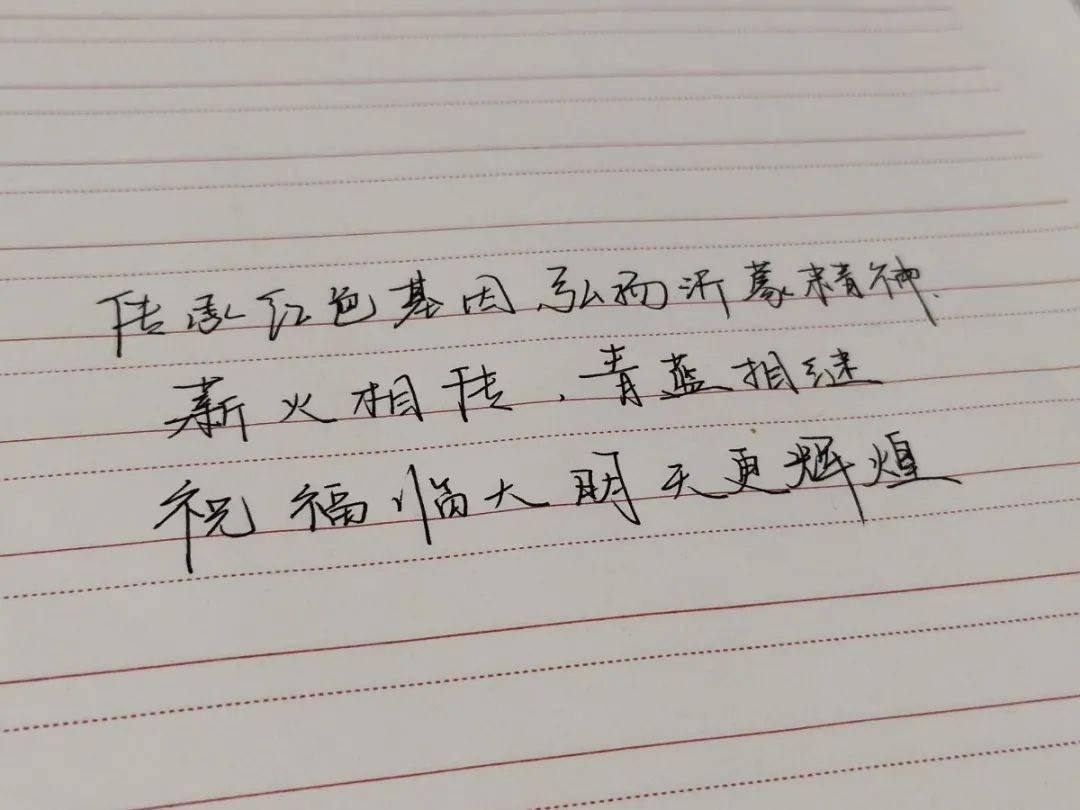 传承红色基因弘扬沂蒙精神.
薪火相传,青蓝相继
祝福临大明天更辉煌